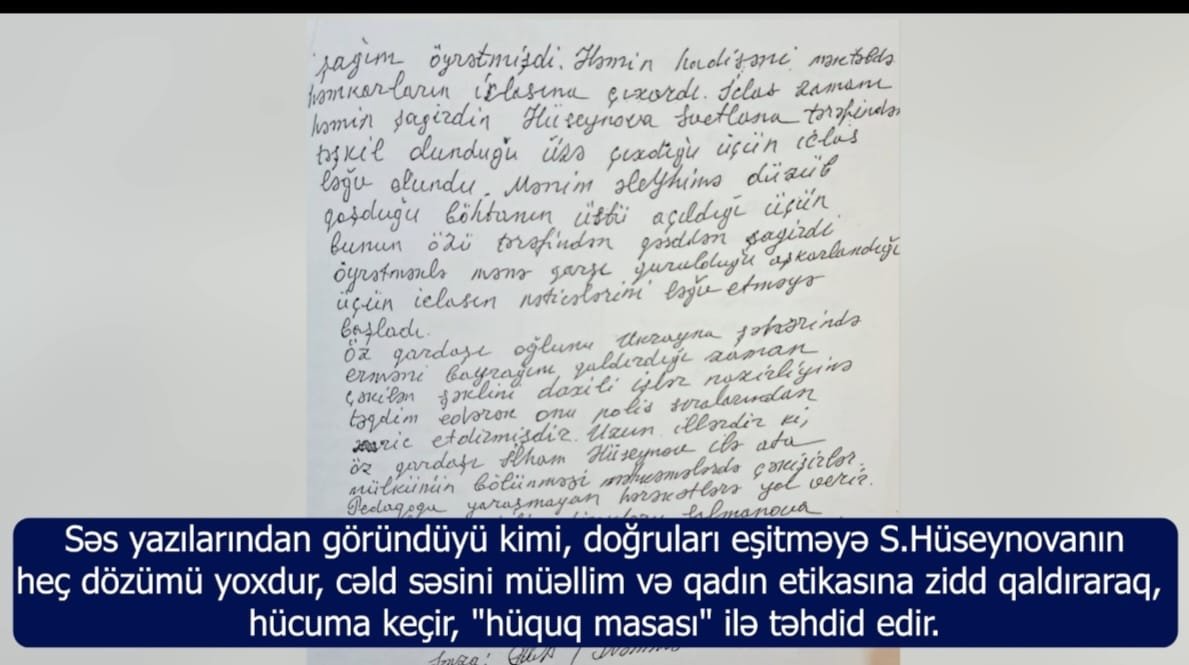 şagirn öyrətmişdi. Həmin hadisəni məktəbdə
həmkarların iclasına çıxardı. İclas zamanı
həmin şagirdin Hüseynova Svetlana tərəfindən
təşkil olunduğu üzə çıxdığı üçün iclas
ləğv olundu. Mənim əleyhimə düzüb
qoşduğu böhtanın üstü açıldığı üçün
bunun özü tərəfindən qəsdən şagirdi
öyrətməklə mənə qarşı qurulduğu aşkarlandığı
üçün iclasın nəticələrini ləğv etməyə
başladı.
Öz qardaşı oğlunu Ukrayna şəhərində
erməni bayrağını qaldırdığı zaman
çəkilən şəklini daxili işlər nazirliyinə
təqdim edərək onu polis sıralarından
xaric etdirmişdir. Uzun illərdir ki,
öz qardaşı İlham Hüseynov ilə ata
mülkünün bölünməsi məhkəmələrdə çəkişirlər.
Pedaqoqa yaraşmayan hərəkətlərə yol verir.
Salmanova
Səs yazılarından göründüyü kimi, doğruları eşitməyə S.Hüseynovanın
heç dözümü yoxdur, cəld səsini müəllim və qadın etikasına zidd qaldıraraq,
hücuma keçir, "hüquq masası" ilə təhdid edir.
İmza: